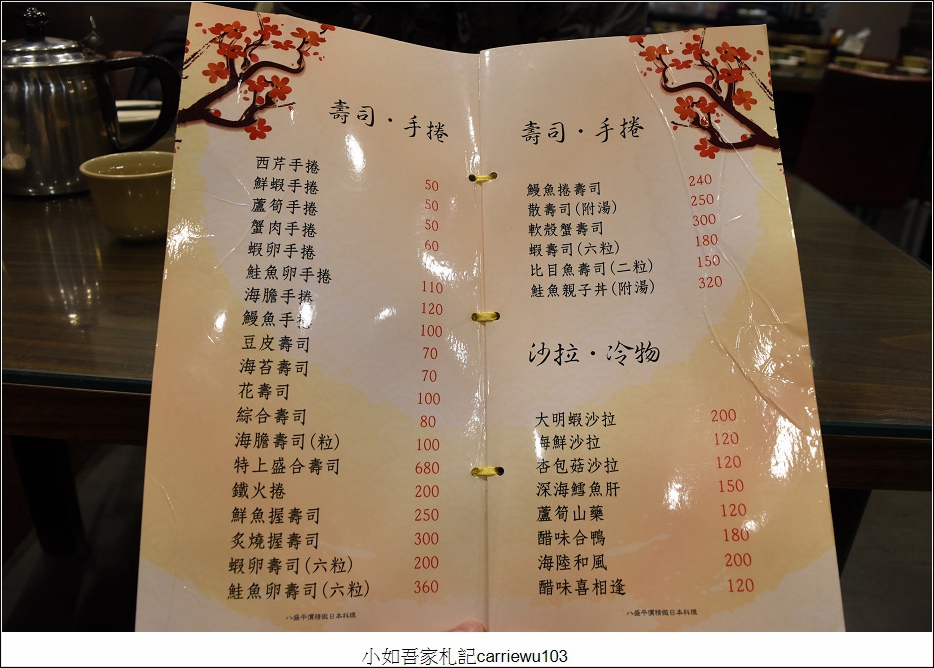 壽司·手捲
西芹手捲 50
鮮蝦手捲 50
蘆筍手捲 50
蟹肉手捲 60
蝦卵手捲
鮭魚卵手捲 110
海膽手捲 120
鰻魚手捲 100
豆皮壽司 70
海苔壽司 70
花壽司 100
綜合壽司 80
海膽壽司(粒) 100
特上盛合壽司 680
鐵火捲 200
鮮魚握壽司 250
炙燒握壽司 300
蝦卵壽司(六粒) 200
鮭魚卵壽司(六粒) 360
八盛平價精緻日本料理
壽司·手捲
鰻魚捲壽司 240
散壽司(附湯) 250
軟殼蟹壽司 300
蝦壽司(六粒) 180
比目魚壽司(二粒) 150
鮭魚親子丼(附湯) 320
沙拉·冷物
大明蝦沙拉 200
海鮮沙拉 120
杏包菇沙拉 120
深海鱈魚肝 150
蘆筍山藥 120
醋味合鴨 180
海陸和風 200
醋味喜相逢 120
八盛平價精緻日本料理
小如吾家札記carriewu103